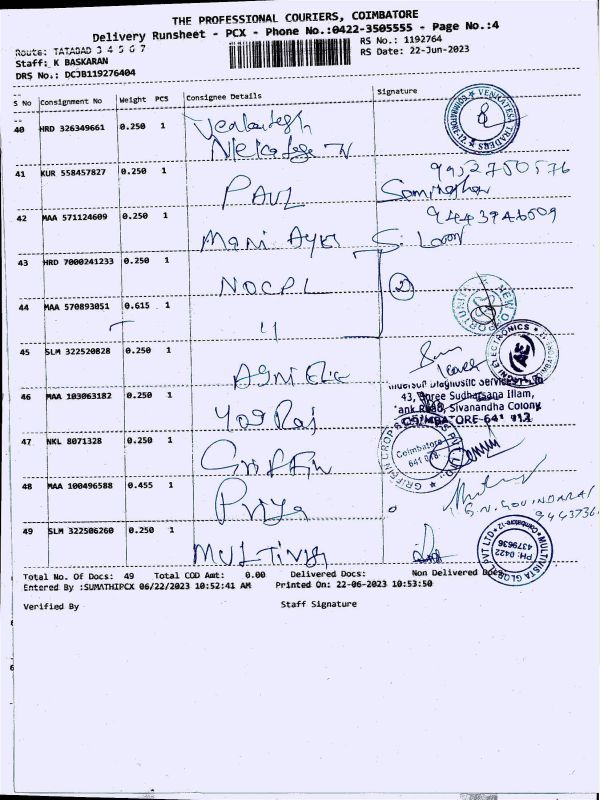 THE PROFESSIONAL COURIERS, COIMBATORE
Delivery Runsheet - PCX - Phone No.:0422-3505555 - Page No.:4
Route: TATABAD 3 4 5 6 7
RS No.: 1192764
Staff: K BASKARAN
RS Date: 22-Jun-2023
DRS No.: DCJB119276404
S No Consignment No Weight PCS Consignee Details Signature
40 HRD 326349661 0.250 1 Venkatesh
VENKATESA TRADERS
COIMBATORE-12
41 KUR 558457827 0.250 1 PAUL
9952750576
42 MAA 571124609 0.250 1 Mani Ayer
43 HRD 7000241233 0.250 1 NOCPL 2
44 MAA 570893051 0.615 1 "
45 SLM 322520828 0.250 1 AGNi Ele
AGNI ELECTRONICS
Diagnostic Services
46 MAA 103063182 0.250 1 Yog Raj
43, Shree Sudharsana Illam,
Tank Road, Sivanandha Colony
COIMBATORE-641 012
47 NKL 8071328 0.250 1 Griffin
Coimbatore
641 012
48 MAA 100496588 0.455 1 Priya
G.N. GOVINDARAJ
9443736
49 SLM 322506260 0.250 1 MULTIVISTA
MULTIVISTA GLOBAL PVT LTD
Coimbatore-12
PH: 0422
4379636
Total No. Of Docs: 49 Total COD Amt: 0.00 Delivered Docs: Non Delivered Docs:
Entered By :SUMATHIPCX 06/22/2023 10:52:41 AM Printed On: 22-06-2023 10:53:50
Verified By Staff Signature